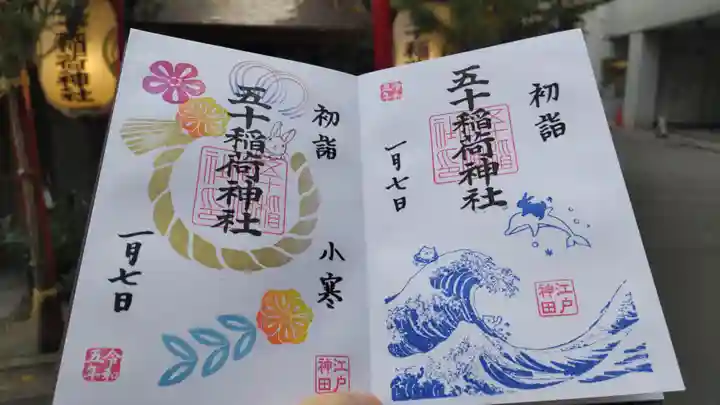 稲荷神社
初詣
五十稲荷神社
小寒
一月七日
令和
五年
江戸
神田
初詣
五十稲荷神社
一月七日
江戸
神田